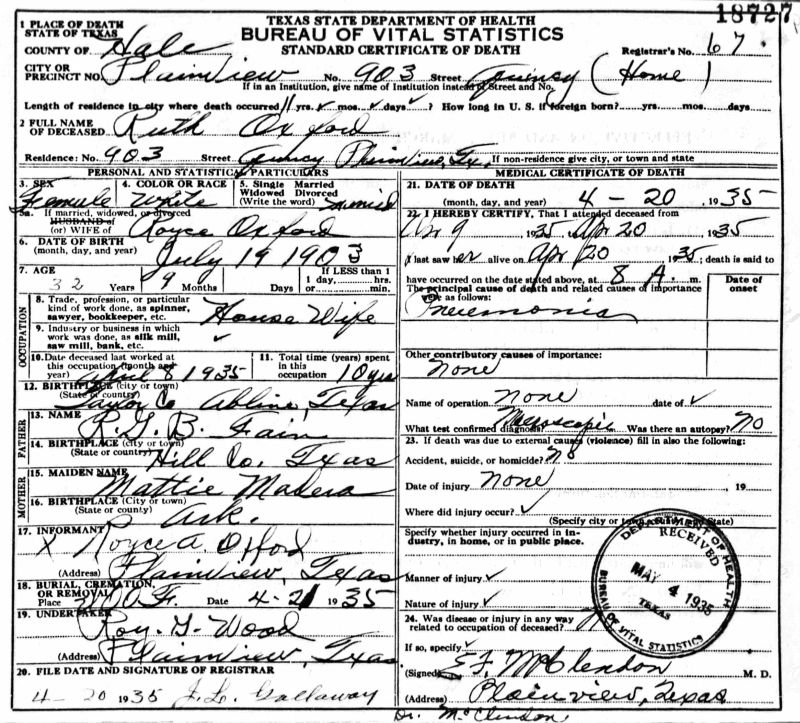 TEXAS STATE DEPARTMENT OF HEALTH
BUREAU OF VITAL STATISTICS
STANDARD CERTIFICATE OF DEATH
18727
1 PLACE OF DEATH
STATE OF TEXAS
COUNTY OF Hale
Registrar's No. 67.
CITY OR PRECINCT NO. Plainview No. 903 Street Quincy (Home)
If in an Institution, give name of Institution instead of Street and No.
Length of residence in city where death occurred 11 yrs. ✓ mos. ✓ days ✓? How long in U. S. if foreign born? yrs. mos. days
2 FULL NAME OF DECEASED Ruth Oxford
Residence: No. 903 Street Quincy Plainview, Tex. If non-residence give city, or town and state
PERSONAL AND STATISTICAL PARTICULARS
3. SEX Female
4. COLOR OR RACE White
5. Single Married Widowed Divorced (Write the word)
5a. If married, widowed, or divorced
HUSBAND of (or) WIFE of Royce Oxford
6. DATE OF BIRTH (month, day, and year) July 19 1903
7. AGE 32 Years 9 Months Days If LESS than 1 day, hrs. or min.
OCCUPATION
8. Trade, profession, or particular kind of work done, as spinner, sawyer, bookkeeper, etc. House Wife
9. Industry or business in which work was done, as silk mill, saw mill, bank, etc. ✓
10. Date deceased last worked at this occupation (month and year) April 8 1935
11. Total time (years) spent in this occupation 10 yrs
12. BIRTHPLACE (city or town) (State or country) Taylor Co Abline, Texas
FATHER
13. NAME R. G. B. Fain
14. BIRTHPLACE (city or town) (State or country) Hill Co. Texas
MOTHER
15. MAIDEN NAME Mattie Madera
16. BIRTHPLACE (City or town) (State or county) Ark.
17. INFORMANT X Royce A. Oxford
(Address) Plainview, Texas
18. BURIAL, CREMATION, OR REMOVAL
Place Date 4-21 1935
19. UNDERTAKER Roy. G. Wood
(Address) Plainview, Texas
20. FILE DATE AND SIGNATURE OF REGISTRAR
4-20 1935 J. L. Gallaway
MEDICAL CERTIFICATE OF DEATH
21. DATE OF DEATH (month, day, and year) 4-20 1935
22. I HEREBY CERTIFY, That I attended deceased from
Apr 9 1935 Apr 20 1935
I last saw er alive on Apr 20 1935; death is said to
have occurred on the date stated above, at 8 A. m.
The principal cause of death and related causes of importance were as follows:
Date of onset
Pneumonia
Other contributory causes of importance:
None
Name of operation none date of ✓
What test confirmed diagnosis? Was there an autopsy? No
23. If death was due to external cause (violence) fill in also the following:
Accident, suicide, or homicide? No
Date of injury None 19
Where did injury occur? ✓
(Specify city or town, county and State)
Specify whether injury occurred in industry, in home, or in public place.
Manner of injury ✓
Nature of injury ✓
24. Was disease or injury in any way related to occupation of deceased?
If so, specify ✓
(Signed) E. F. McClendon M. D.
(Address) Plainview, Texas
Dr. McClendon
DEPARTMENT OF HEALTH
RECEIVED
MAY 4 1935
TEXAS
BUREAU OF VITAL STATISTICS